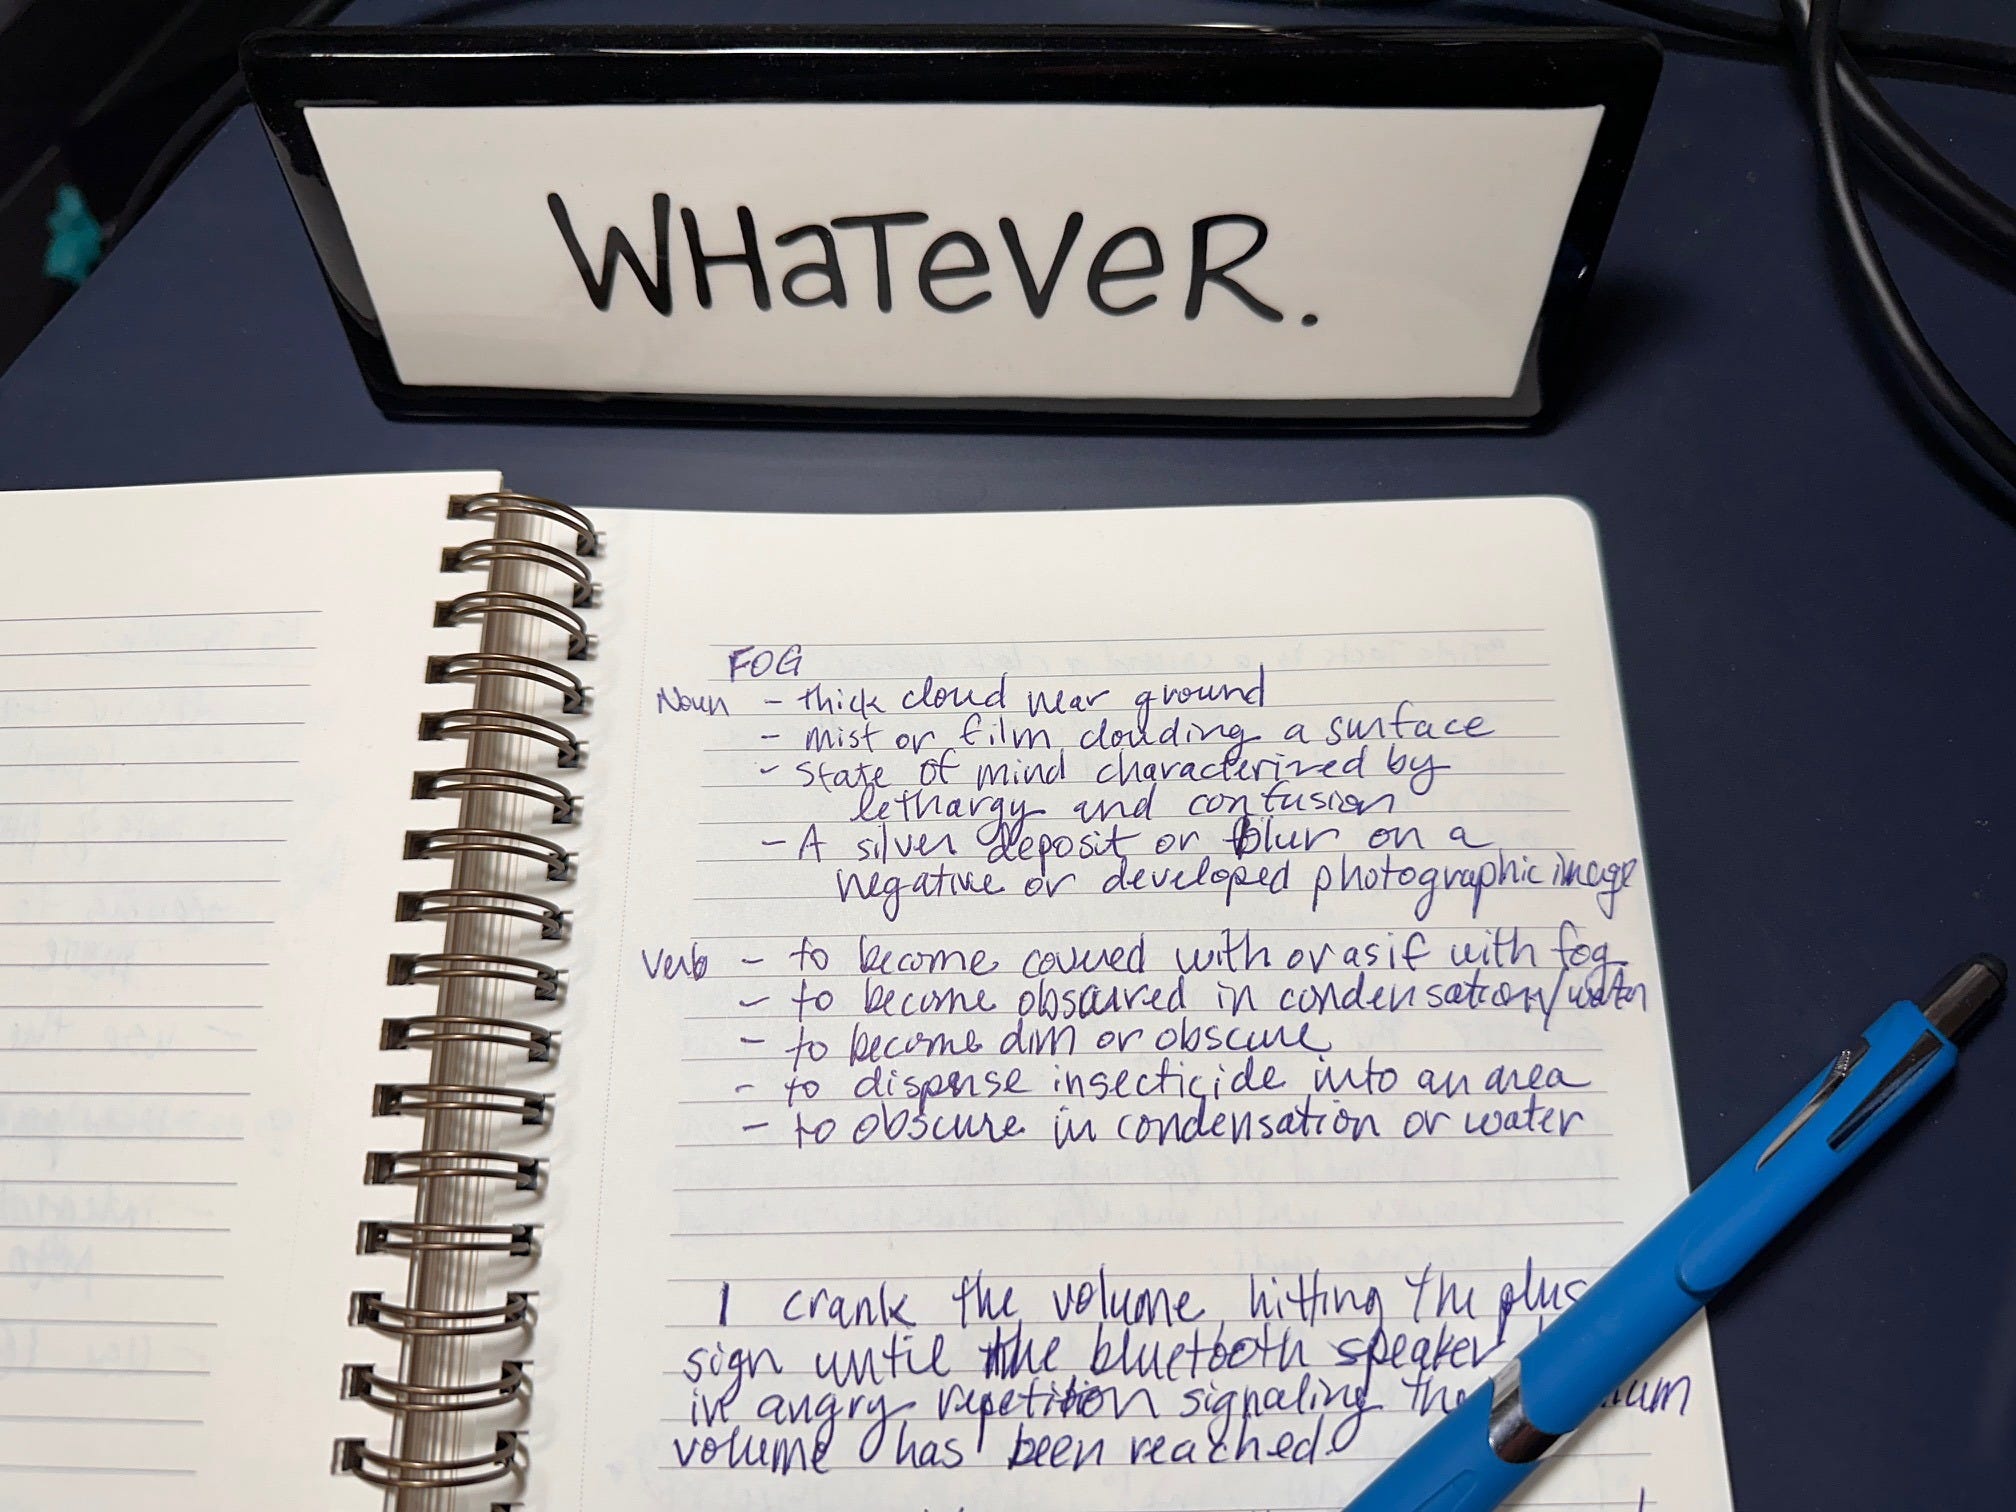 WHaTeVeR.
FOG
Noun - thick cloud near ground
- mist or film clouding a surface
- State of mind characterized by
lethargy and confusion
- A silver deposit or blur on a
negative or developed photographic image
Verb - to become covered with or as if with fog
- to become obscured in condensation/water
- to become dim or obscure
- to dispense insecticide into an area
- to obscure in condensation or water
I crank the volume, hitting the plus
sign until the bluetooth speaker
in angry repetition signaling the
volume has been reached.